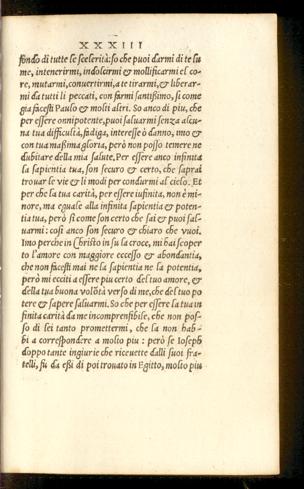 XXXIII
fondo di tutte le scelerità: so che puoi darmi di te lu
me, intenerirmi, indolcirmi & mollificarmi el co
re, mutarmi, convertirmi, a te tirarmi, & liberar
mi da tutti li peccati, con farmi santissimo, si come
gia facesti Paulo & molti altri. So anco di piu, che
per essere onnipotente, puoi salvarmi senza alcu
na tua difficultà, fadiga, interesse ò danno, imo &
con tua maßima gloria, però non posso temere ne
dubitare della mia salute, Per essere anco infinita
la sapientia tua, son securo & certo, che saprai
trovar le vie & li modi per condurmi al cielo. Et
per che la tua carità, per essere iufinita, non è mi-
nore, ma equale alla infinita sapientia & poten-
tia tua, però sì come son certo che sai & puoi sal-
uarmi: cosi anco son securo & chiaro che vuoi.
Imo perche in Christo in su la croce, mi hai scoper
to l'amore con maggiore eccesso & abondantia,
che non facesti mai ne la sapientia ne la potentia,
però mi ecciti a essere piu certo del tuo amore, &
della tua buona volōtà verso di me, che del tuo po
tere & sapere salvarmi. So che per essere la tua in
finita carità da me incomprensibile, che non pos-
so di lei tanto promettermi, che la non hab-
bi a correspondere a molto piu : però se Ioseph
doppo tante ingiurie che ricevette dalli suoi fra-
telli, fù da eßi di poi trovato in Egitto, molto piu